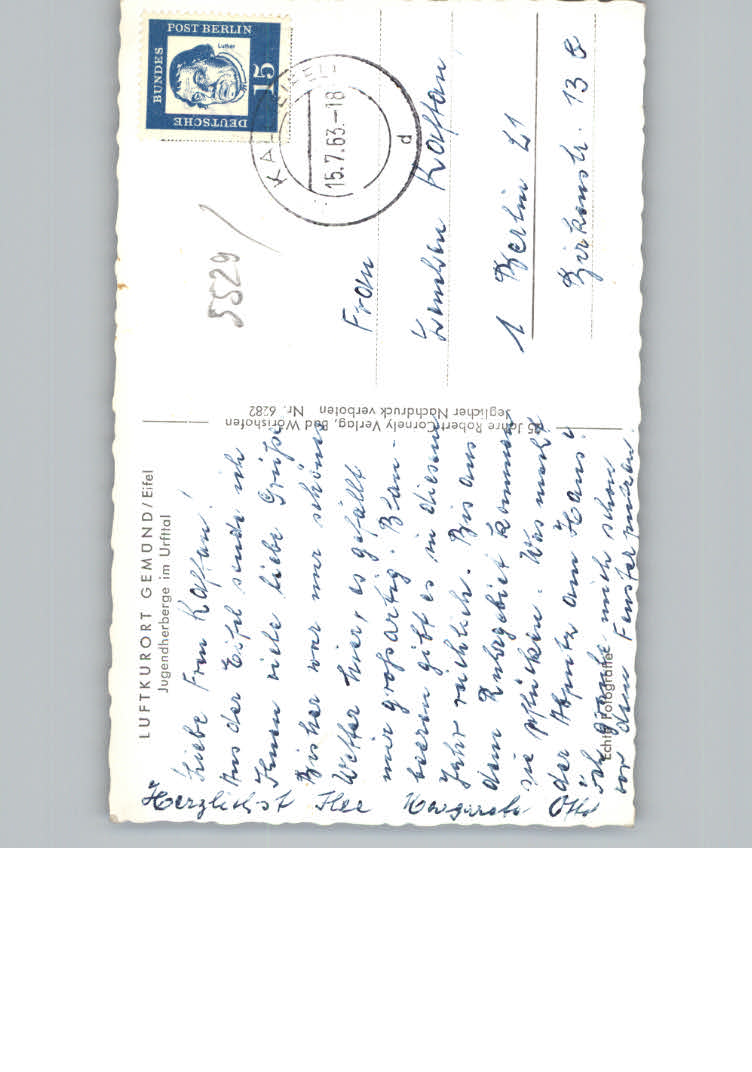 LUFTKURORT GEMÜND/Eifel
Jugendherberge im Urfttal
Liebe Frau Kaffan!
Aus der Eifel sende ich
Ihnen viele liebe Grüße
Bisher war nur schönes
Wetter hier, es gefällt
mir großartig. Blau-
beeren gibt es in diesem
Jahr reichlich. Bis aus
dem Ruhrgebiet kommen
sie pflücken. Was macht
der Abputz am Haus?
Ich grause mich schon
vor dem Fensterputzen
Herzlichst Ihre Margarete Otto
Echte Fotografie
25 Jahre Robert Cornely Verlag, Bad Wörishofen
Jeglicher Nachdruck verboten Nr. 6282
5529
DEUTSCHE BUNDES POST BERLIN
Luther
15
KALL (EIFEL)
15.7.63.-18
d
Frau
Kaffan
1 Berlin 21
Birkenstr. 13